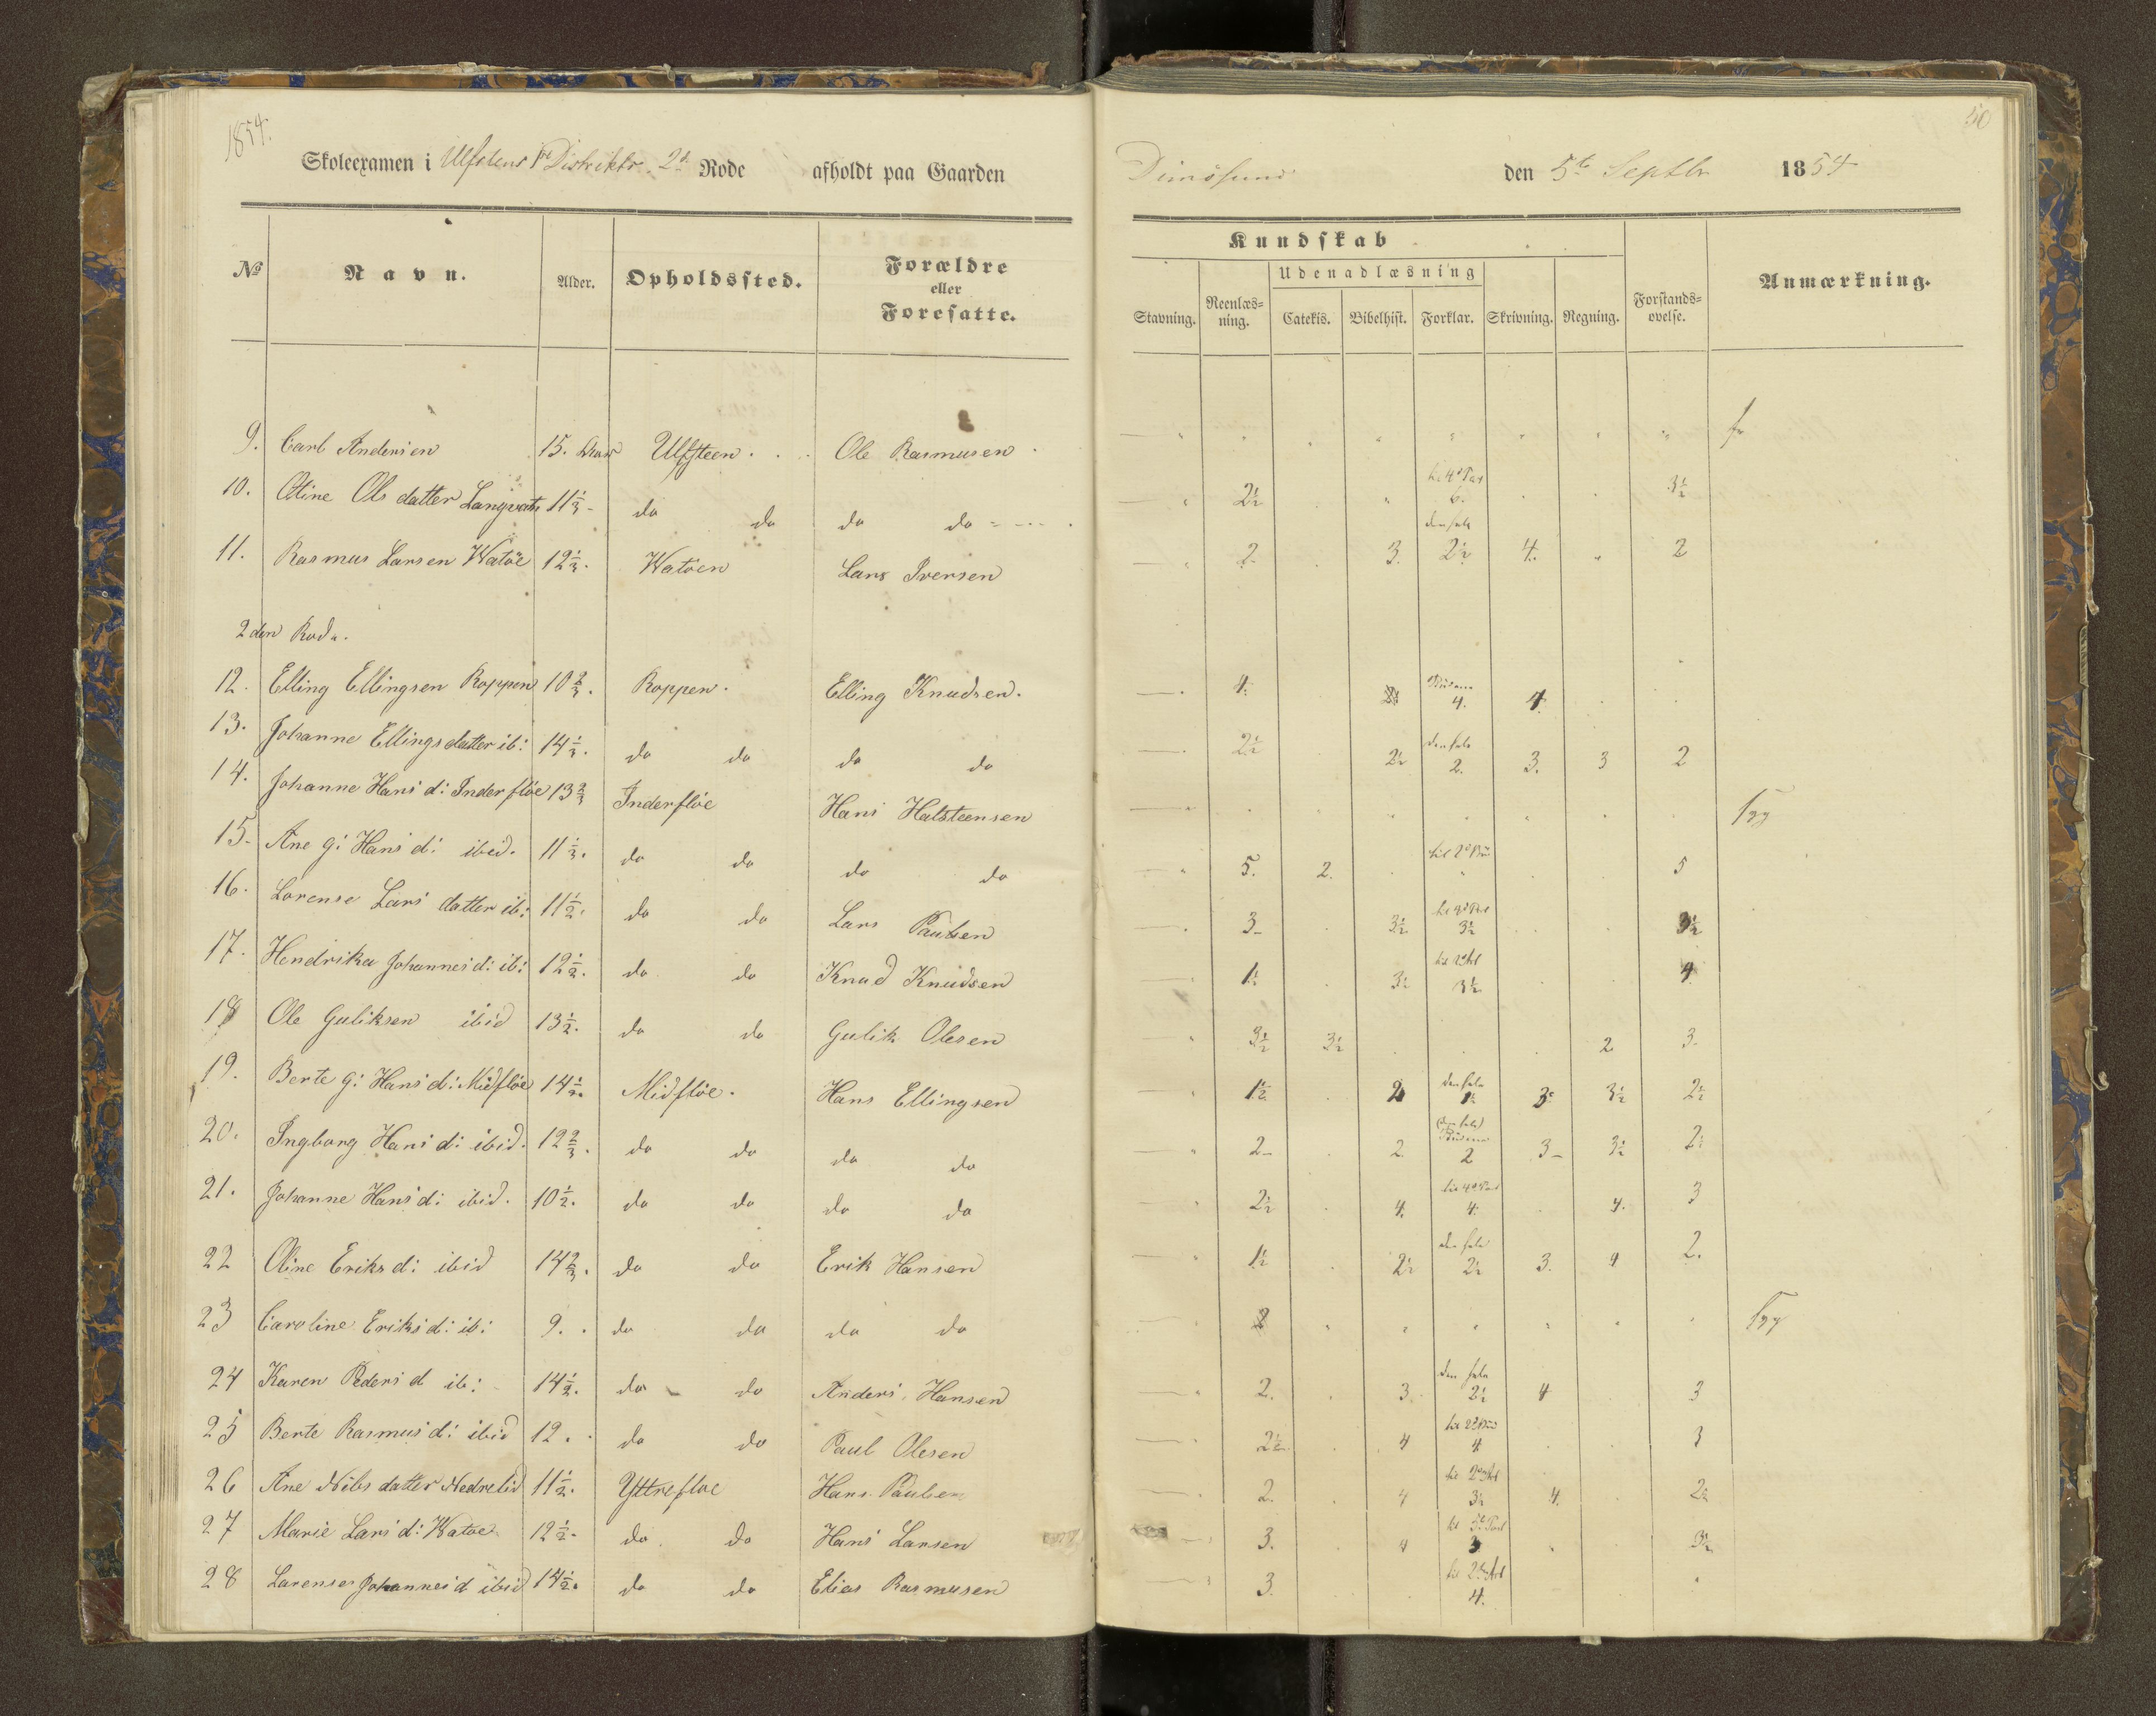 1854.
50
Skoleexamen i Ulfstens 1ste Distrikts 2d Rode afholdt paa Gaarden Dimösund den 5te Septbr 1854
Kundskab
Udenadlæsning
No Navn. Alder. Opholdssted. Forældre eller Foresatte. Stavning. Reenlæs=ning. Catekis. Bibelhist. Forklar. Skrivning. Regning. Forstands=øvelse. Anmærkning.
9. Carl Andersen 15. Ulfsteen . . . Ole Rasmusen
10. Oline Ols datter Langvatn 11 1/3 - do do do do 2½ til 4d Part 6. 3½
11. Rasmus Larsen Watöe 12 1/3. Watöen Lars Iversen 2. 3. den hele 2½ 4. 2
2den Rode.
12. Elling Ellingsen Roppen 10 2/3. Roppen. Elling Knudsen. 4. 4. 4
13. Johanne Ellingsdatter ib: 14 1/3. do do do do 2½ 2½ den hele 2. 3. 3 2
14. Johanne Hans d: Inderflöe 13 2/3 Inderflöe Hans Halsteensen Syg
15. Ane G: Hans d: ibid. 11 1/3. do do do do 5. 2. til 2d Bøn 5
16. Lorense Lars datter ib: 11 1/2. do do Lars Paulsen 3 - 3½ 3½ 3½
17. Hendrika Johannes d: ib: 12 1/2. do do Knud Knudsen 1½ 3½ 3½ 4
18 Ole Guliksen ibid 13 1/2. do do Gulik Olesen 3½ 3½ 2 3.
19. Berte G: Hans d: Midflöe 14 1/2. Midflöe. Hans Ellingsen 1½ 2 den hele 1½ 3. 3½ 2½
20. Ingborg Hans d: ibid. 12 2/3. do do do do 2 - 2. (den hele) 2 3 - 3½ 2½
21. Johanne Hans d: ibid. 10 1/2. do do do do 2½ 4. til 4d Part 4. 4. 3
22 Oline Eriks d: ibid 14 2/3. do do Erik Hansen 1½ 2½ den hele 2½ 3. 4 2.
23 Caroline Eriks d: ib: 9. . do do do do Syg
24 Karen Peders d ib: 14 1/2. do do Anders Hansen 2. 3. den hele 2½ 4 3
25 Berte Rasmus d: ibid 12. . do do Paul Olesen 2½ 4 til 2d Bøn 4 3
26 Ane Nils datter Nedrelid 11 1/2. Yttreflöe Hans Paulsen 2. 4 til 2d Art 3½ 4. 2½
27 Marie Lars d: Watöe 12 1/2. do do Hans Larsen 3. 4 til 5te Part 3 3½
28 Lorense Johannes d ibid 14 1/2. do do Elias Rasmusen 3. til 2d Art 4.